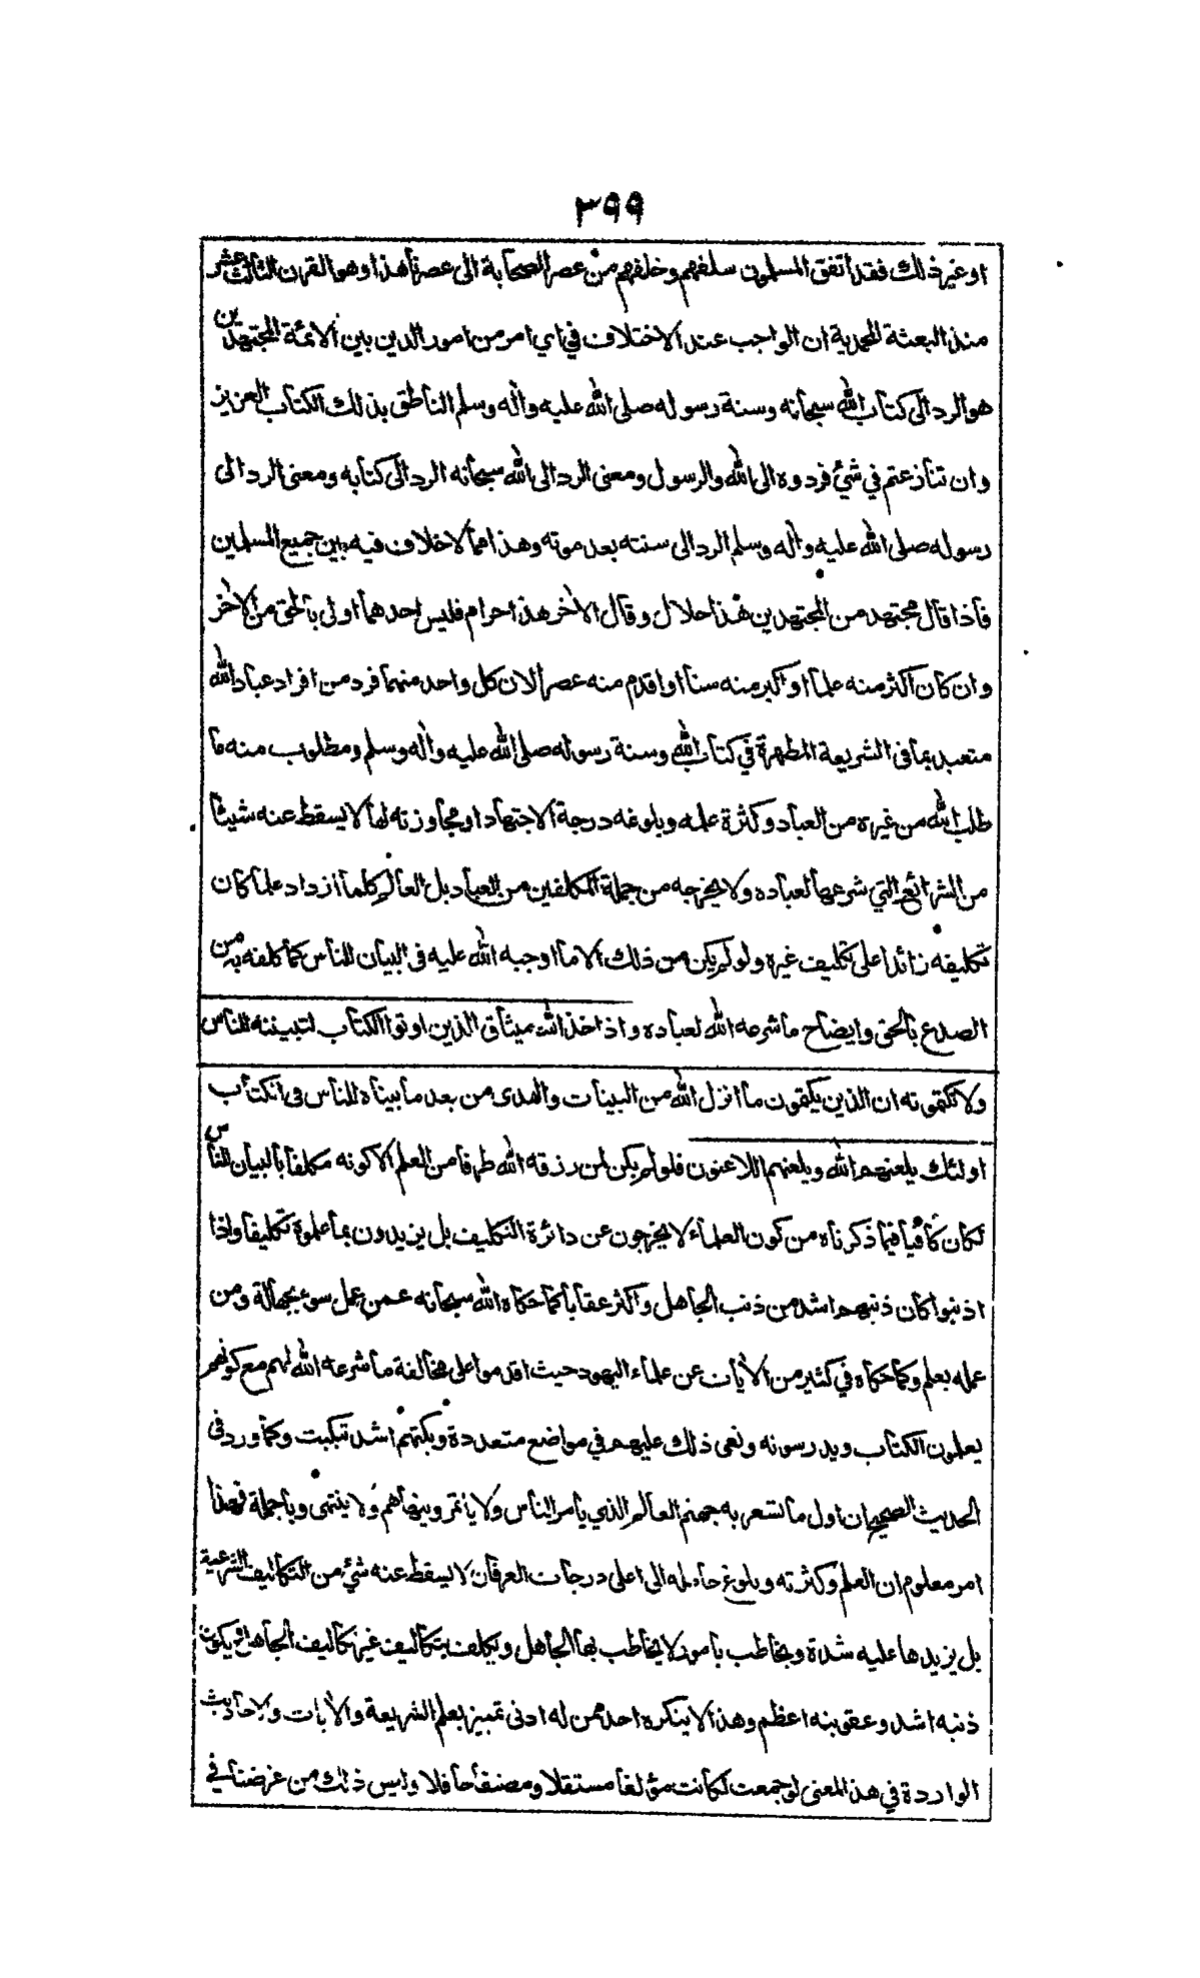 ٣٩٩
او غير ذلك فقد اتفق المسلمون سلفهم وخلفهم من عصر الصحابة الى عصرنا هذا وهو القرن الثالث عشر
منذ البعثة المحمدية ان الواجب عند الاختلاف في اي امر من امور الدين بين الائمة المجتهدين
هو الرد الى كتاب الله سبحانه وسنة رسوله صلى الله عليه واله وسلم الناطق بذلك الكتاب العزيز
وان تنازعتم في شيئ فردوه الى الله والرسول ومعنى الرد الى الله سبحانه الرد الى كتابه ومعنى الرد الى
رسوله صلى الله عليه واله وسلم الرد الى سنته بعد موته وهذا مما لا خلاف فيه بين جميع المسلمين
فاذا قال مجتهد من المجتهدين هذا حلال وقال الاخر هذا حرام فليس احدهما اولى بالحق من الاخر
وان كان اكثر منه علما او اكبر منه سنا او اقدم منه عصرا لان كل واحد منهما فرد من افراد عباد الله
متعبد بما في الشريعة المطهرة في كتاب الله وسنة رسوله صلى الله عليه واله وسلم ومطلوب منه ما
طلب الله من غيره من العباد وكثرة علمه وبلوغه درجة الاجتهاد او مجاوزته لها لا يسقط عنه شيئا
من الشرائع التي شرعها لعباده ولا يخرجه من جملة المكلفين من العباد بل العالم كلما ازداد علما كان
تكليفه زائدا على تكليف غيره ولو لم يكن من ذلك الا ما اوجبه الله عليه في البيان للناس كما كلفه به من
الصدع بالحق وايضاح ما شرعه الله لعباده واذ اخذ الله ميثاق الذين اوتوا الكتاب لتبيننه للناس
ولا تكتمونه ان الذين يكتمون ما انزل الله من البينات والهدى من بعد ما بيناه للناس في الكتاب
اولئك يلعنهم الله ويلعنهم اللاعنون فلو لم يكن لمن رزقه الله طرفا من العلم الا كونه مكلفا بالبيان للناس
لكان كافيا فيما ذكرناه من كون العلماء لا يخرجون عن دائرة التكليف بل يزيدون بما علموه تكليفا واذا
اذنبوا كان ذنبهم اشد من ذنب الجاهل واكثر عقابا كما حكاه الله سبحانه عمن عمل سوء بجهالة ومن
عمله بعلم وكما حكاه في كثير من الأيات عن علماء اليهود حيث اقدموا على مخالفة ما شرعه الله لهم مع كونهم
يعلمون الكتاب ويدرسونه ونعى ذلك عليهم في مواضع متعددة وبكتهم اشد تبكيت وكما ورد في
الحديث الصحيح ان اول ما تسعر به جهنم العالم الذي يأمر الناس ولا يأتمر وينهاهم ولا ينتهى وبالجملة فهذا
امر معلوم ان العلم وكثرته وبلوغ حامله الى اعلى درجات العرفان لا يسقط عنه شيئ من التكاليف الشرعية
بل يزيدها عليه شدة ويخاطب بامور لا يخاطب بها الجاهل ويكلف بتكاليف غير تكاليف الجاهل ويكون
ذنبه اشد وعقوبته اعظم وهذا لا ينكره احد ممن له ادنى تمييز بعلم الشريعة والأيات والاحاديث
الواردة في هذا المعنى لو جمعت لكانت مؤلفا مستقلا ومصنفا حافلا وليس ذلك من غرضنا في